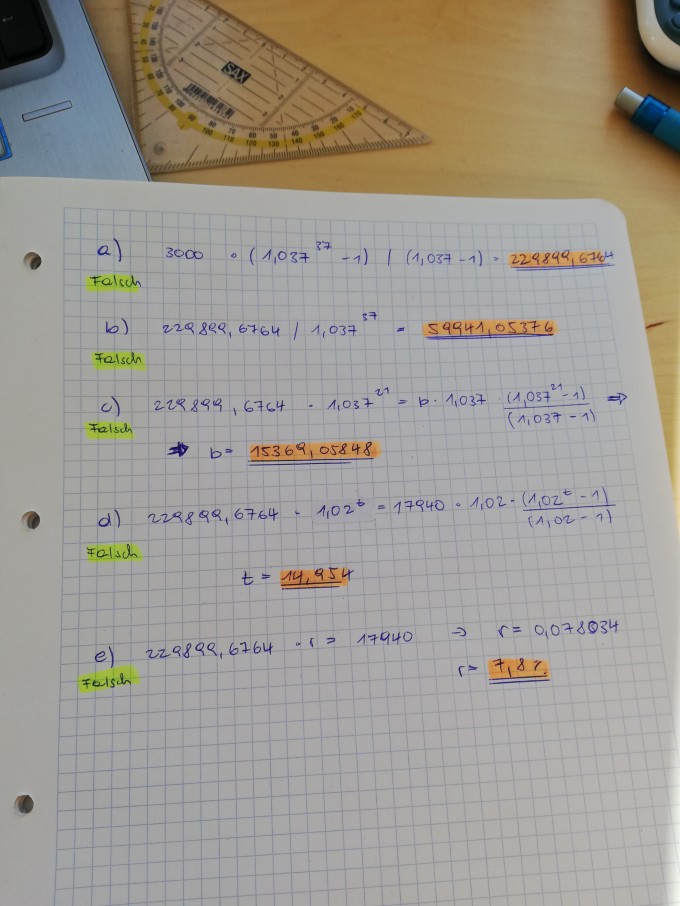 SAX
a) 3000 · (1,037^37 - 1) / (1,037 - 1) = 229899,6764
Falsch
b) 229899,6764 / 1,037^37 = 59941,05376
Falsch
c) 229899,6764 · 1,037^21 = b · 1,037 · (1,037^21 - 1) / (1,037 - 1) ⇒
Falsch
⇒ b = 15369,05848
d) 229899,6764 · 1,02^t = 17940 · 1,02 · (1,02^t - 1) / (1,02 - 1)
Falsch
t = 14,954
e) 229899,6764 · r = 17940 → r = 0,078034
Falsch
r = 7,8 %